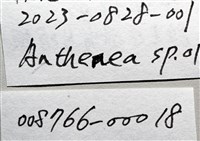 2023-0828-001
Anthenea sp.01
008766-00018